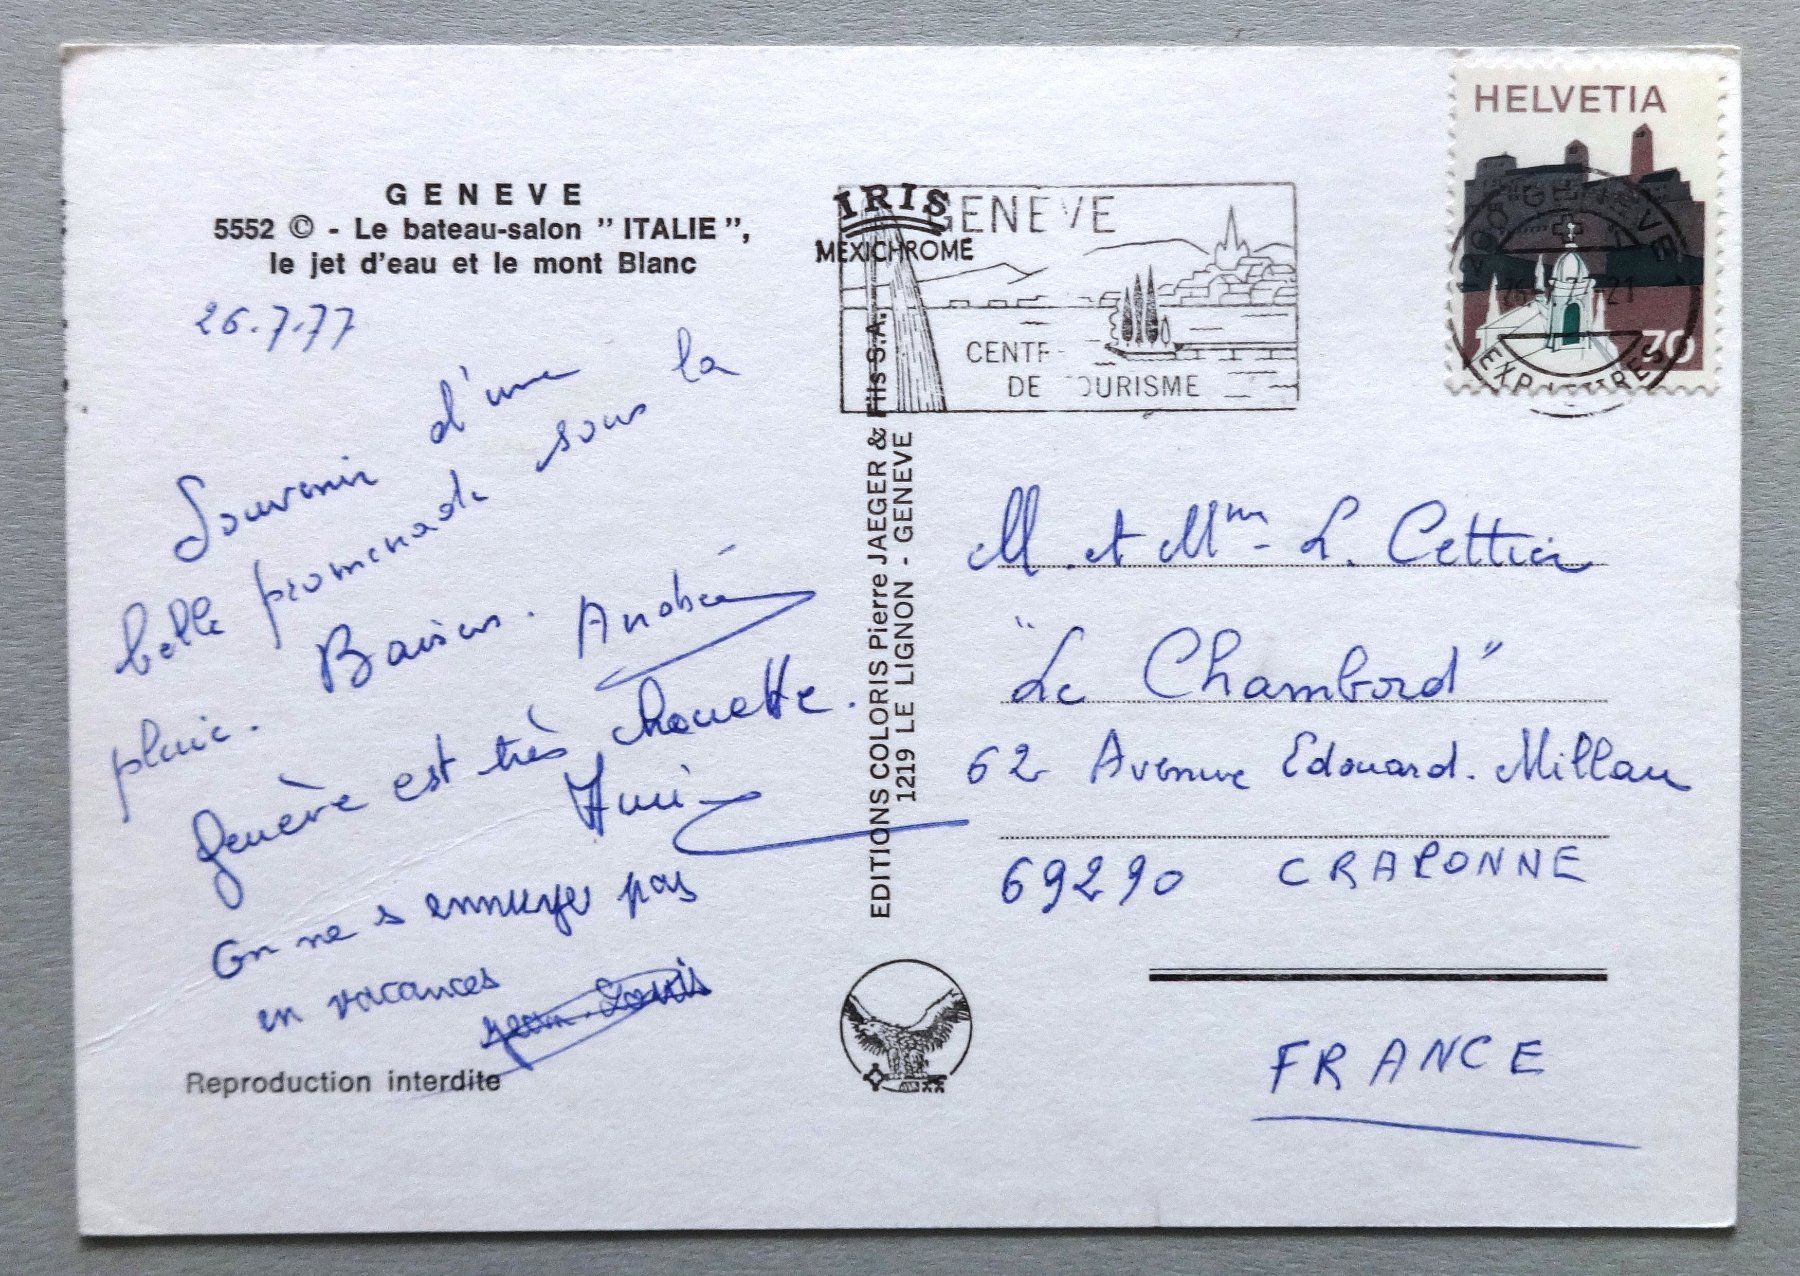 GENEVE
5552 © - Le bateau-salon "ITALIE",
le jet d'eau et le mont Blanc
26.7.77
Souvenir d'une
belle promenade sous la
pluie. Baisers. Andrée
Genève est très chouette.
On ne s ennuye pas
en vacances
Jean-Louis
Reproduction interdite
IRIS
MEXICHROME
EDITIONS COLORIS Pierre JAEGER & Fils S.A.
1219 LE LIGNON - GENEVE
GENEVE
CENTR
DE TOURISME
HELVETIA
30
GENEVE
EXP. LETTRES
M. et Mme L. Cettier
"Le Chambord"
62 Avenue Edouard. Millau
69290 CRAPONNE
FRANCE